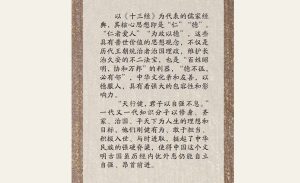 以《十三经》为代表的儒家经
典，其核心思想即是“仁”“德”。
“仁者爱人”“为政以德”，这些
具有普世价值的思想观念，不仅是
历代王朝统治者治国理政、维护长
治久安的不二法宝，也是“百姓昭
明，协和万邦”的利器。“德不孤，
必有邻”，中华文化亲和友善、以
德服人，具有着强大的包容性和影
响力。
“天行健，君子以自强不息。”
一代又一代知识分子以修身、齐
家、治国、平天下为人生的理想和
目标，他们刚健有为、敢于担当、
积极入世、与时进取，挺起了中华
民族的强硬脊梁，使得中国这个文
明古国虽历经内忧外患仍能自立
自强、昂首前进。